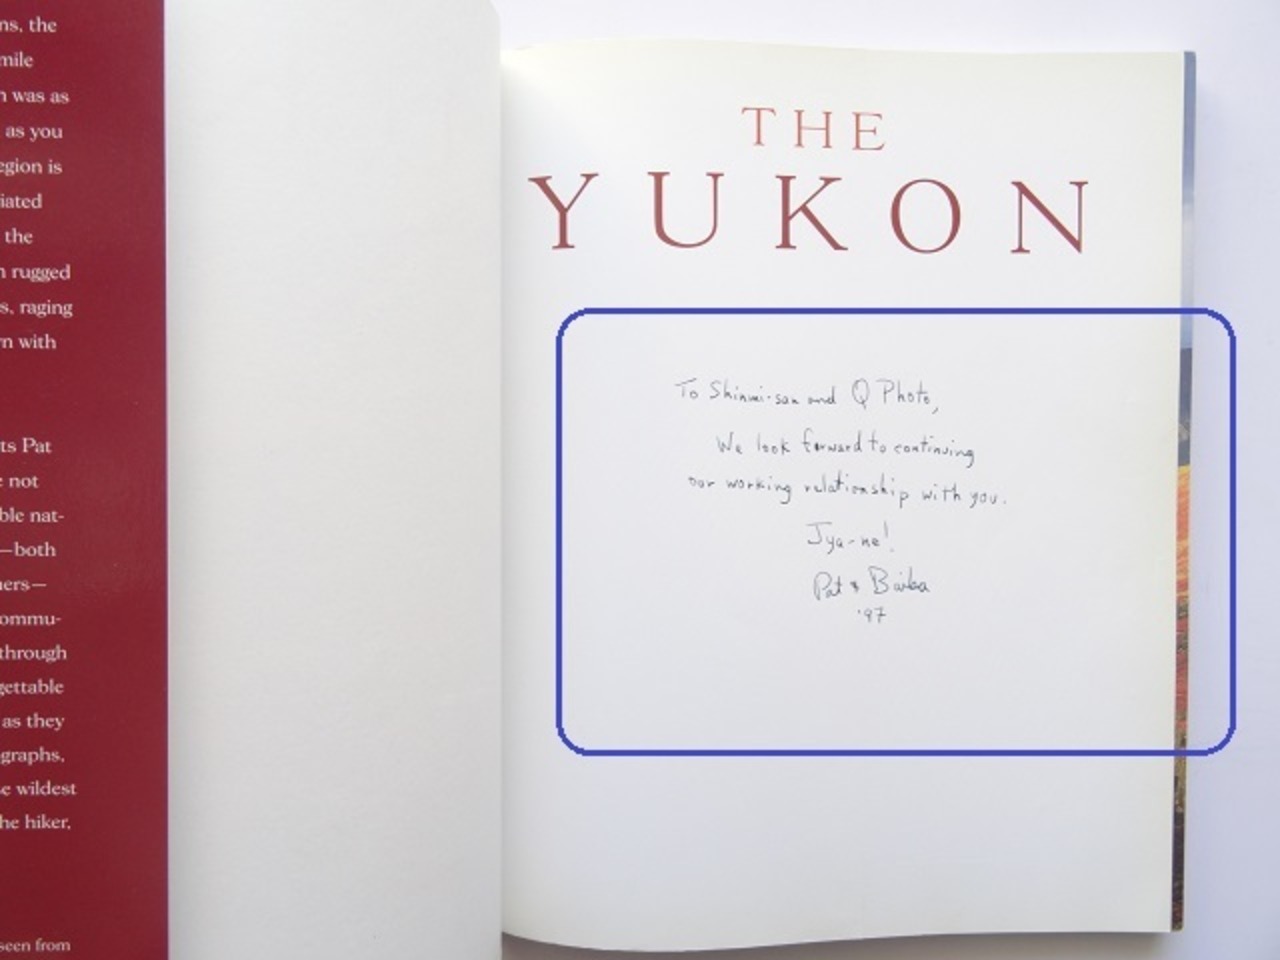 ns, the
mile
was as
as you
egion is
iated
the
rugged
s, raging
rn with
ts Pat
not
ble nat-
—both
ners—
ommu-
through
gettable
as they
graphs,
wildest
he hiker,
seen from
THE
YUKON
To Shinmi-san and Q Photo,
We look forward to continuing
our working relationship with you.
Jya-ne!
Pat & Baiba
'97